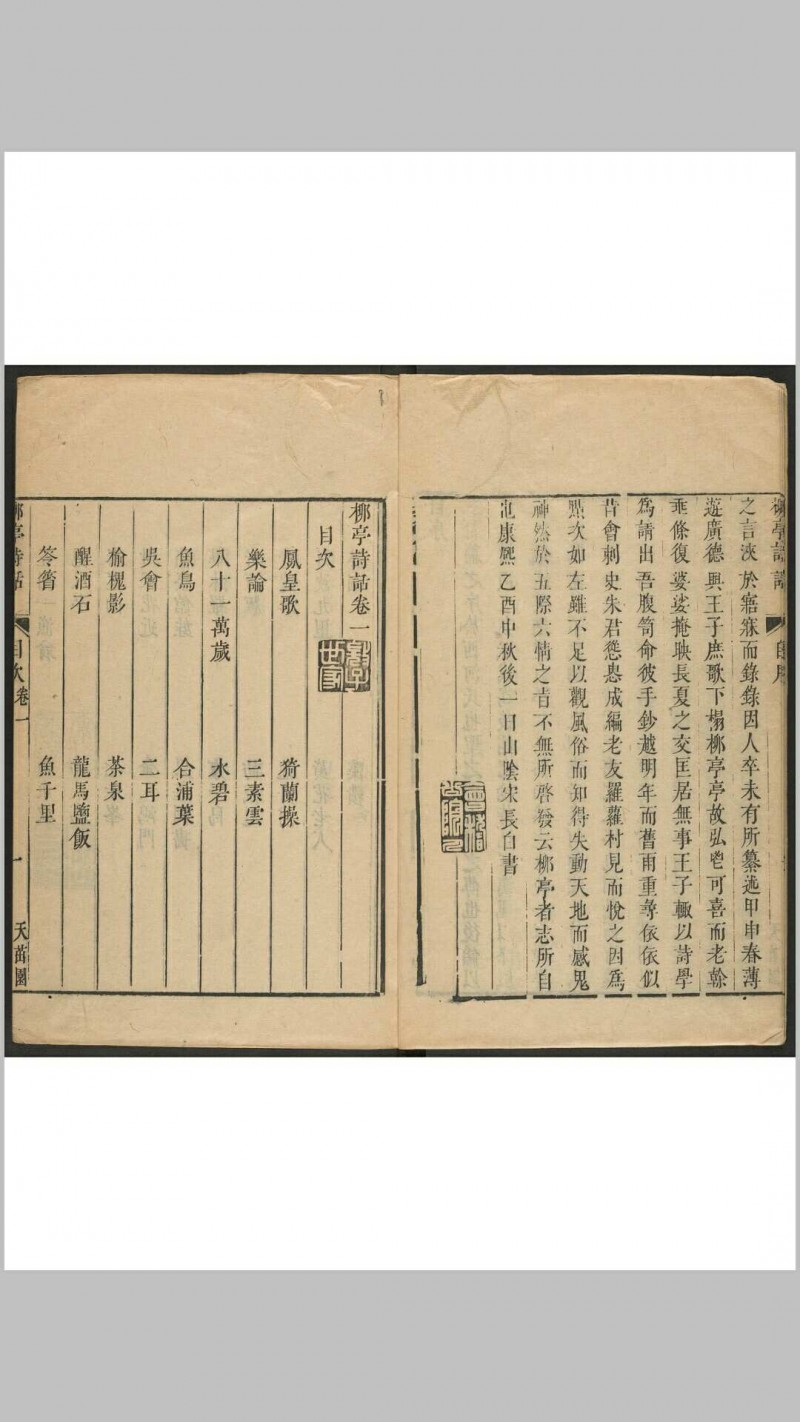 之言浹於寤寐而錄錄因人卒未有所纂述甲申春薄
遊廣德與王子庶歌下榻柳亭亭故弘敞可喜而老榦
垂條復婆娑掩映長夏之交匡居無事王子輒以詩學
爲請出吾腹笥命彼手鈔越明年而舊雨重尋依依似
昔會刺史朱君慫恿成編老友羅蘿村見而悅之因爲
點次如左雖不足以觀風俗而知得失動天地而感鬼
神然於五際六情之旨不無所啓發云柳亭者志所自
也康熙乙酉中秋後一日山陰宋長白書
柳亭詩話卷一
目次
鳳皇歌 猗蘭操
樂論 三素雲
八十一萬歲 水碧
魚鳥 合浦葉
吳會 二耳
榆槐影 茶泉
醒酒石 龍馬鹽飯
笭箵 魚千里
柳亭詩話 目次卷一 一 天茁園